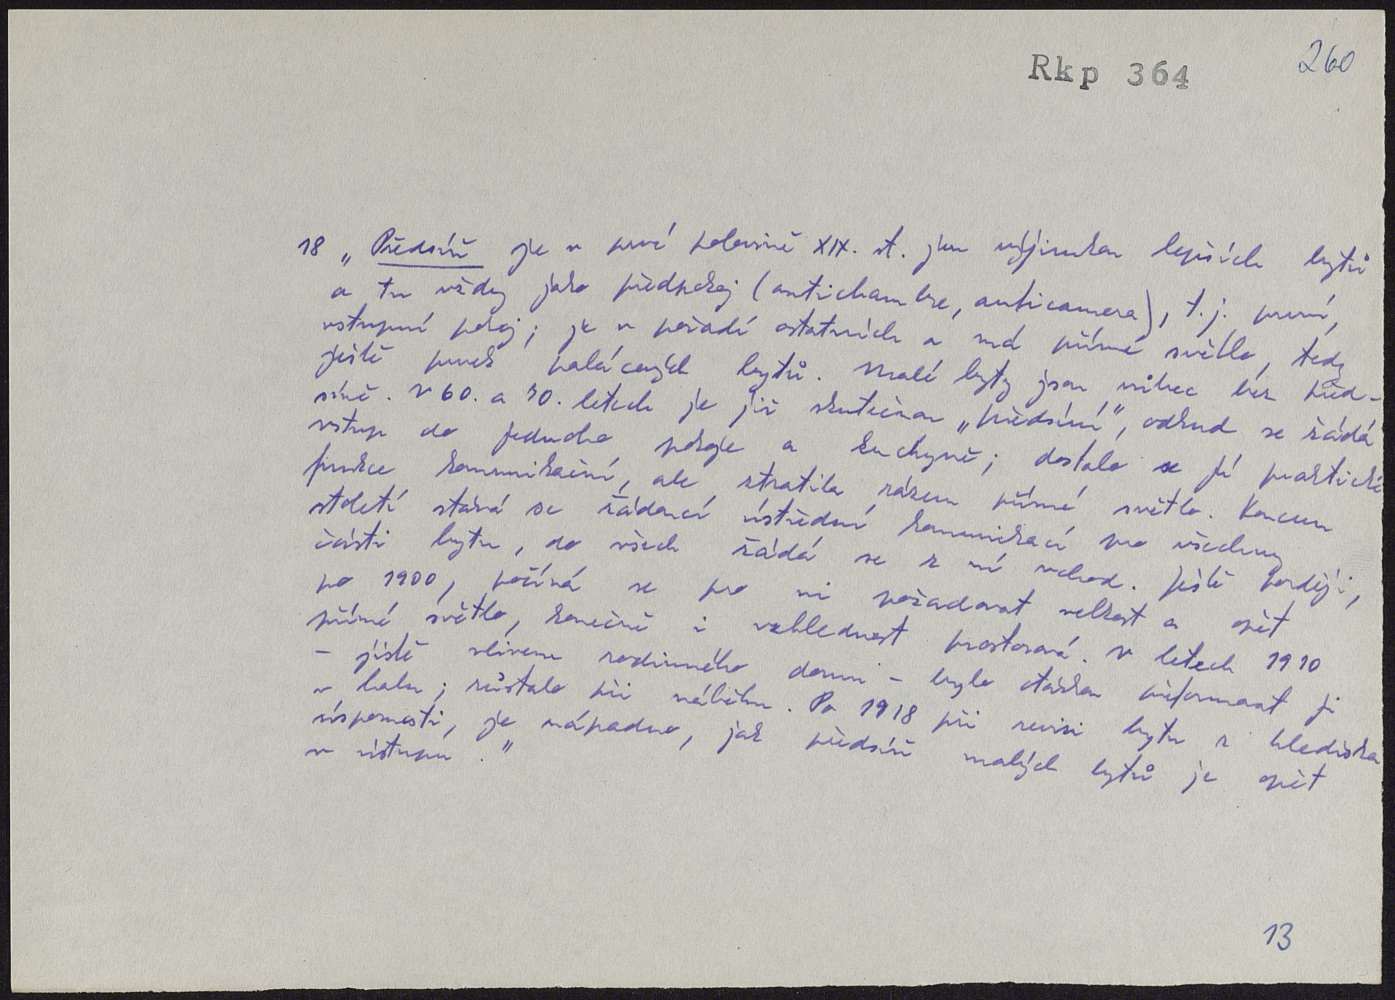 Rkp 364
260
18 „Předsíň je v prvé polovině XIX. st. jen výjimkou lepších bytů
a tu vždy jako předpokoj (antichambre, anticamera), t.j. první,
vstupní pokoj; je v pořadí ostatních a má přímé světlo, tedy
ještě prvek palácových bytů. Malé byty jsou vůbec bez před-
síně. V 60. a 70. letech je již skutečnou „předsíní", odkud se žádá
vstup do jednoho pokoje a kuchyně; dostalo se jí praktické
funkce komunikační, ale ztratila rázem přímé světlo. Koncem
století stává se žádoucí ústřední komunikací pro všechny
části bytu, do všech žádá se z ní vchod. Ještě později,
po 1900, počíná se pro ni požadovat velkost a opět
přímé světlo, konečně i vzhlednost prostorová. V letech 1910
– jistě vlivem rodinného domu – bylo otázkou přeformovat ji
v halu; zůstalo při náběhu. Po 1918 při revisi bytu z hlediska
úspornosti, je nápadno, jak předsíň malých bytů je opět
v ústupu."
13